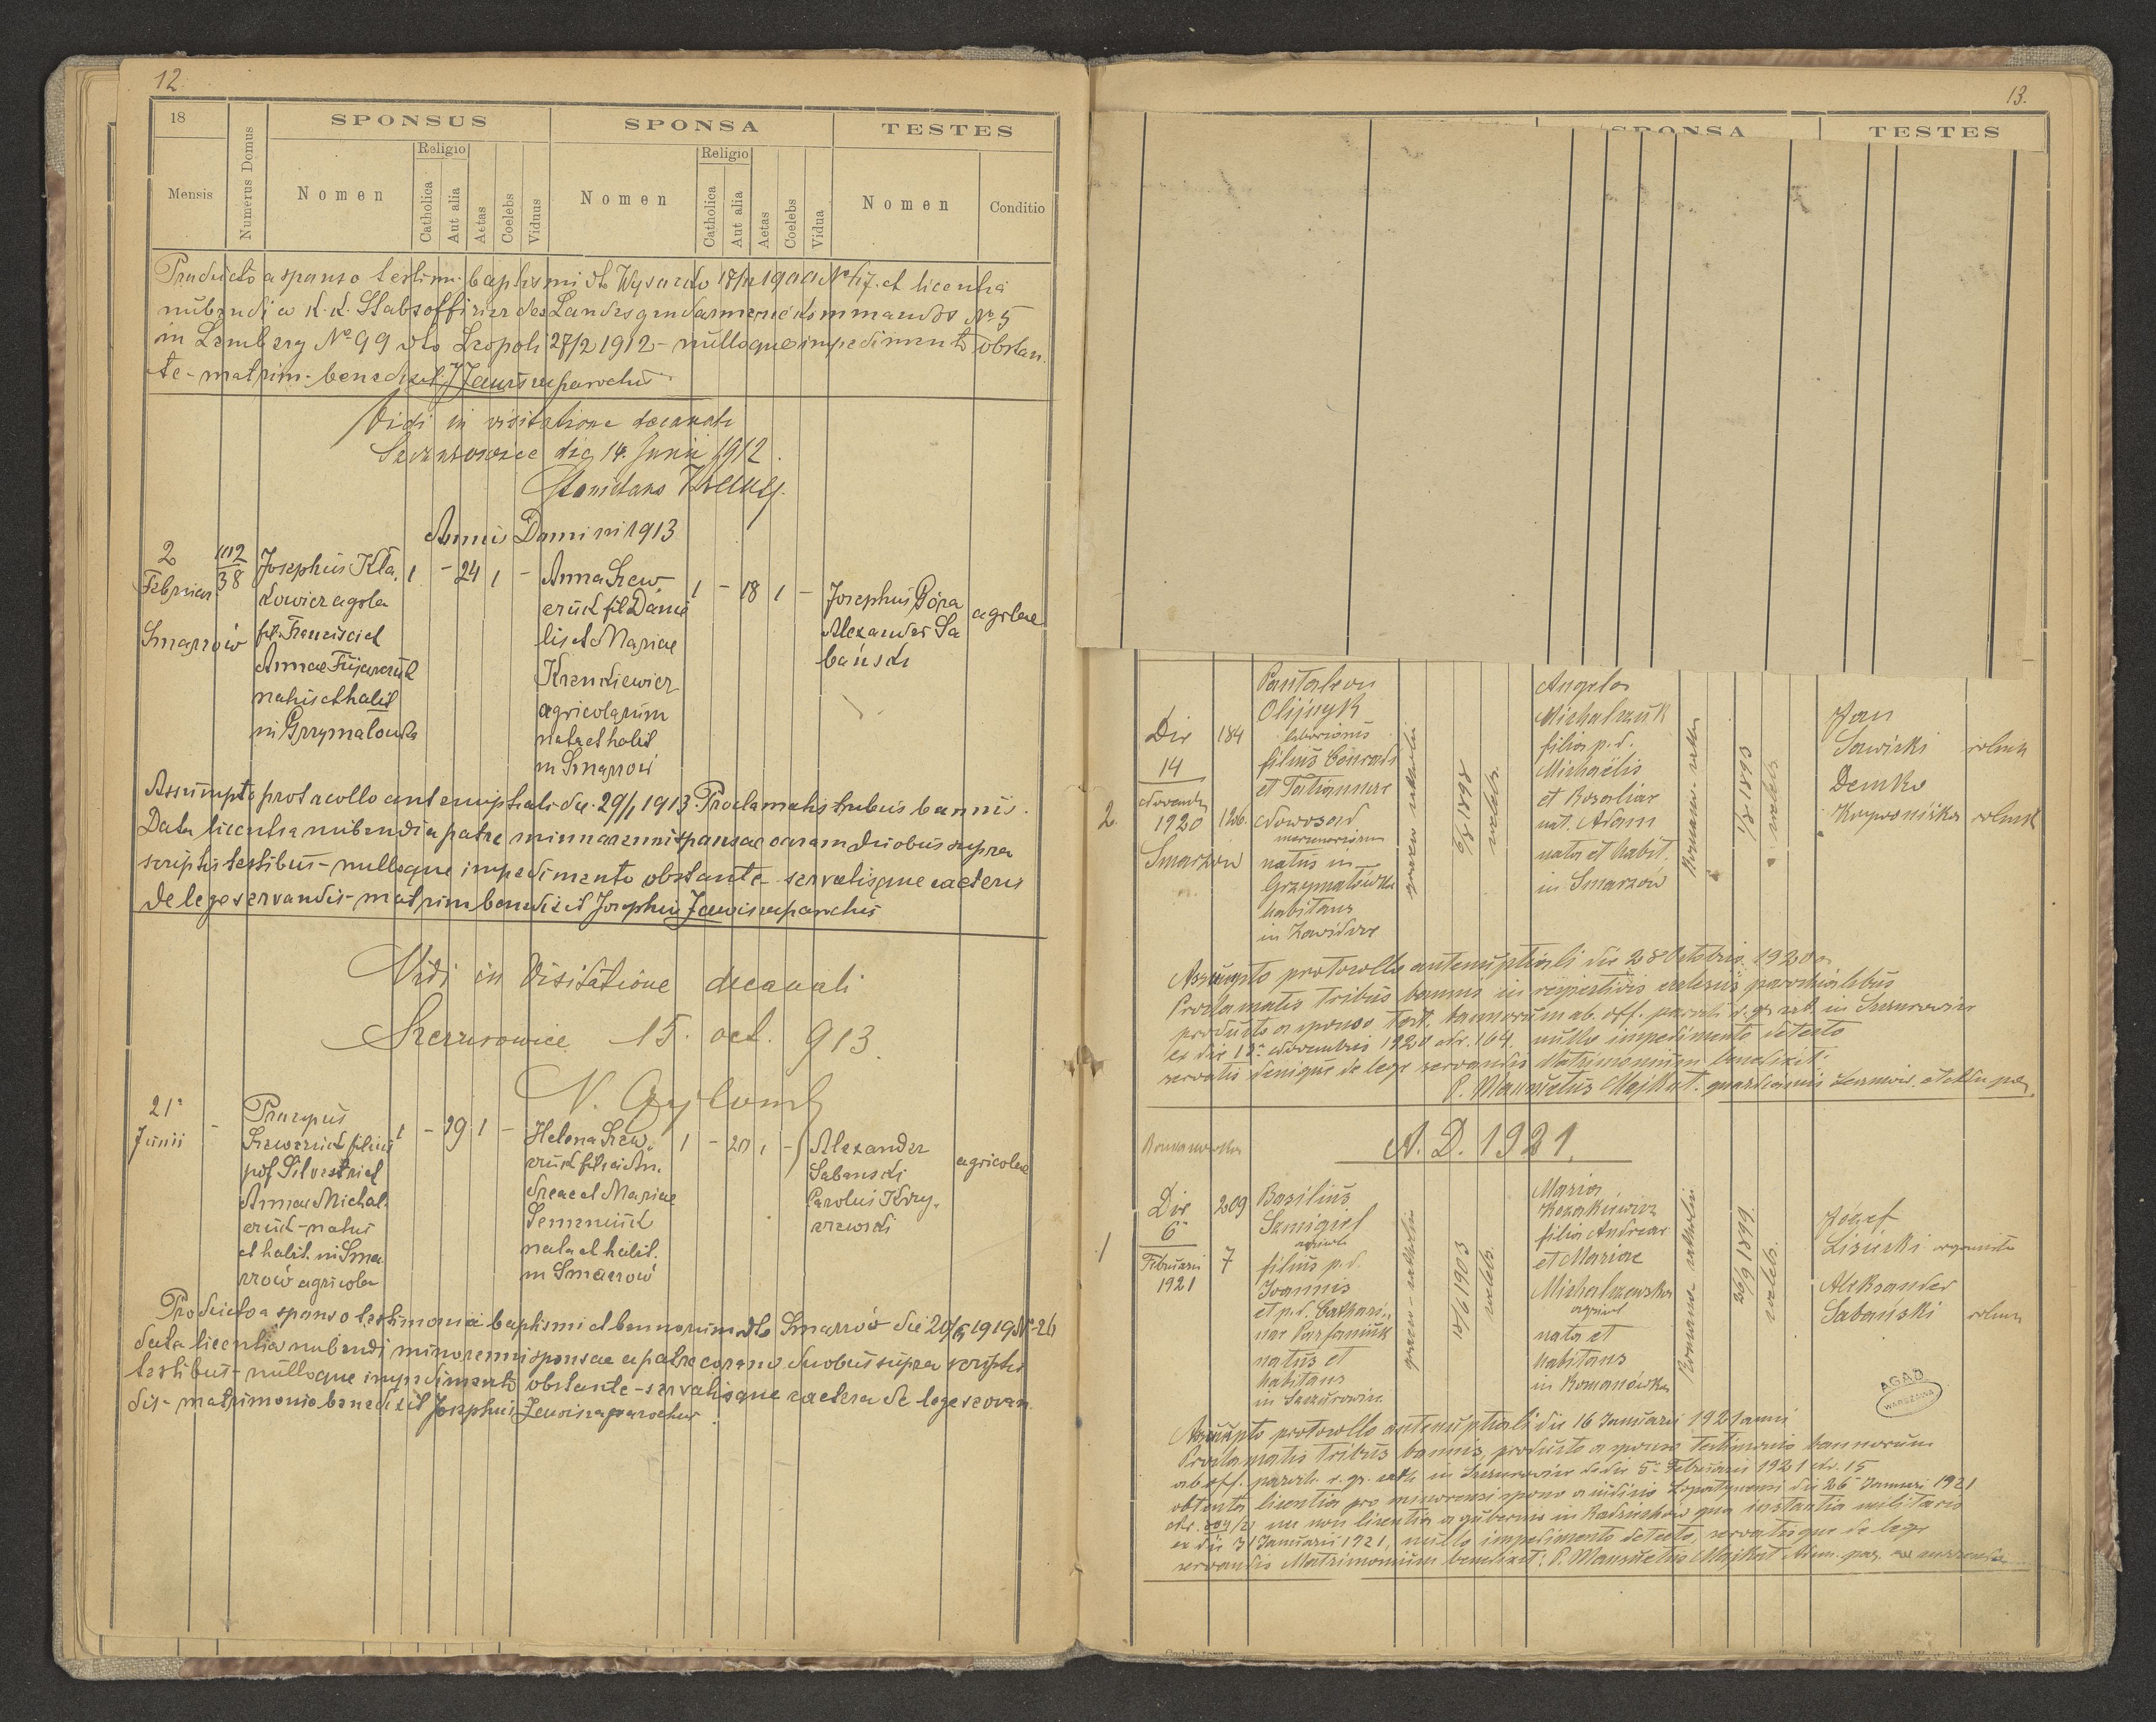 12.
18
Mensis
Numerus Domus
SPONSUS
Nomen
Religio
Catholica
Aut alia
Aetas
Coelebs
Viduus
SPONSA
Nomen
Religio
Catholica
Aut alia
Aetas
Coelebs
Vidua
TESTES
Nomen
Conditio
Producto a sponso testim. baptismi dto 1900 No 67. et licentia
nubendi a K. K. Stabsoffizier des Landesgendarmerie kommandos No 5
in Lemberg No 99 dto Leopoli 27/2 1912 - nulloque impedimento obstan
te - matrim. benedixit parochus
Vidi in visitatione decanali
Szczurowice die 14. Junii 1912.
Stanislaus
Annus Domini 1913
2
Februar.
Smarzów
112
38
Josephus Kla
dowicz agola
fil. Francisci et
Annae
natus et habit
in Grzymałówka
1 - 24 1 -
Anna Szew
czuk fil Danie
lis et Mariae
Krendkiewicz
agricolarum
nata et habit
in Smarzów
1 - 18 1 -
Josephus Góra
Alexander Sa
bański
agolae
Assumpto protocollo antenuptiali die 29/1 1913. Proclamatis tribus bannis.
Data licentia nubendi a patre minnorenni sponsae coram duobus supra
scriptis testibus - nulloque impedimento obstante servatisque caeteris
de lege servandis - matrim benedixit Josephus parochus
Vidi in Visitatione decanali
Szczurowice 15. oct. 913.
21a
Junii
-
Procopius
Szewczuk filius
pdf Silvestri et
Annae Michal.
czuk - natus
et habit. in Sma
rzów agricola
1 - 29 1 -
Helena Szew.
czuk filia An.
dreae et Mariae
Semeniuk
nata et habit.
in Smarzów
1 - 20 1 -
Alexander
Sabanski
Carolus Krzy.
zewski
agricolae
Producto a sponso testimonii baptismi et bannorum dto Smarzów die 20/6 1919 No 26
data licentia nubendi minorenni sponsae a patre coram duobus supra scriptis
testibus - nulloque impedimento obstante - servatisque caetera de lege servan
dis - matrimonio benedixit Josephus parochus
13.
SPONSA
TESTES
2.
Die
14
Novembr
1920
Smarzów
184
126.
Pantaleon
Olijnyk
filius Conradi
et Tatiannae
Nowosad
natus in
Grzymałówka
habitans
in Zawidcze
graeco catholic
6/8 1898
caelebs.
Angela
Michalczuk
filia p.d.
Michaëlis
et Rosaliae
nat. Adam
nata et habit.
in Smarzów
Romano-cath
1/8 1893
caelebs
Jan
Sawicki rolnik
Demko
rolnik
Assumpto protocollo antenuptiali die 28 Octobris 1920 a
Proclamatis tribus bannis in respectivis ecclesiis parochialibus
producto a sponso test. bannorum ab. off. paroch r. gr. cath. in Szczurowice
ex die 12a Novembris 1920 Nr. 164. nullo impedimento detecto
servatis denique de lege servandis Matrimonium benedixit:
P. Mansuetus Majkut. guardianus
Romanówka
A. D. 1921.
1
Die
6a
Februarii
1921
209
7
Basilius
Szmigiel
agricol
filius p.d.
Joannis
et p.d. Cathari.
nae Parfaniuk
natus et
habitans
in Szczurowice
graeco-catholic
caelebs.
Maria
Kozakiewicz
filia Andreae
et Mariae
Michalzewska
agricol
nata et
habitans
in Romanówka
Romana catholic
26/9 1899.
caelebs.
Józef
Lisiecki organista
Aleksander
Sabański rolnik
AGAD
WARSZAWA
Assumpto protocollo antenuptiali die 16 Januarii 1921 anni
Proclamatis tribus bannis, producto a sponso testimonio bannorum
ab off. paroch. r. gr. cath in Szczurowice de die 5a Februarii 1921 Nr. 15
obtenta licentia pro minorenni sponso a iudicio Lopatynensi die 26 Januarii 1921
Nr. 204/21 nec non licentia a gubernio in Radziechów qua instantia militaris
ex die 31 Januarii 1921, nullo impedimento detecto, servatisque de lege
servandis Matrimonium benedixit: P. Mansuetus Majkut Adm. par.